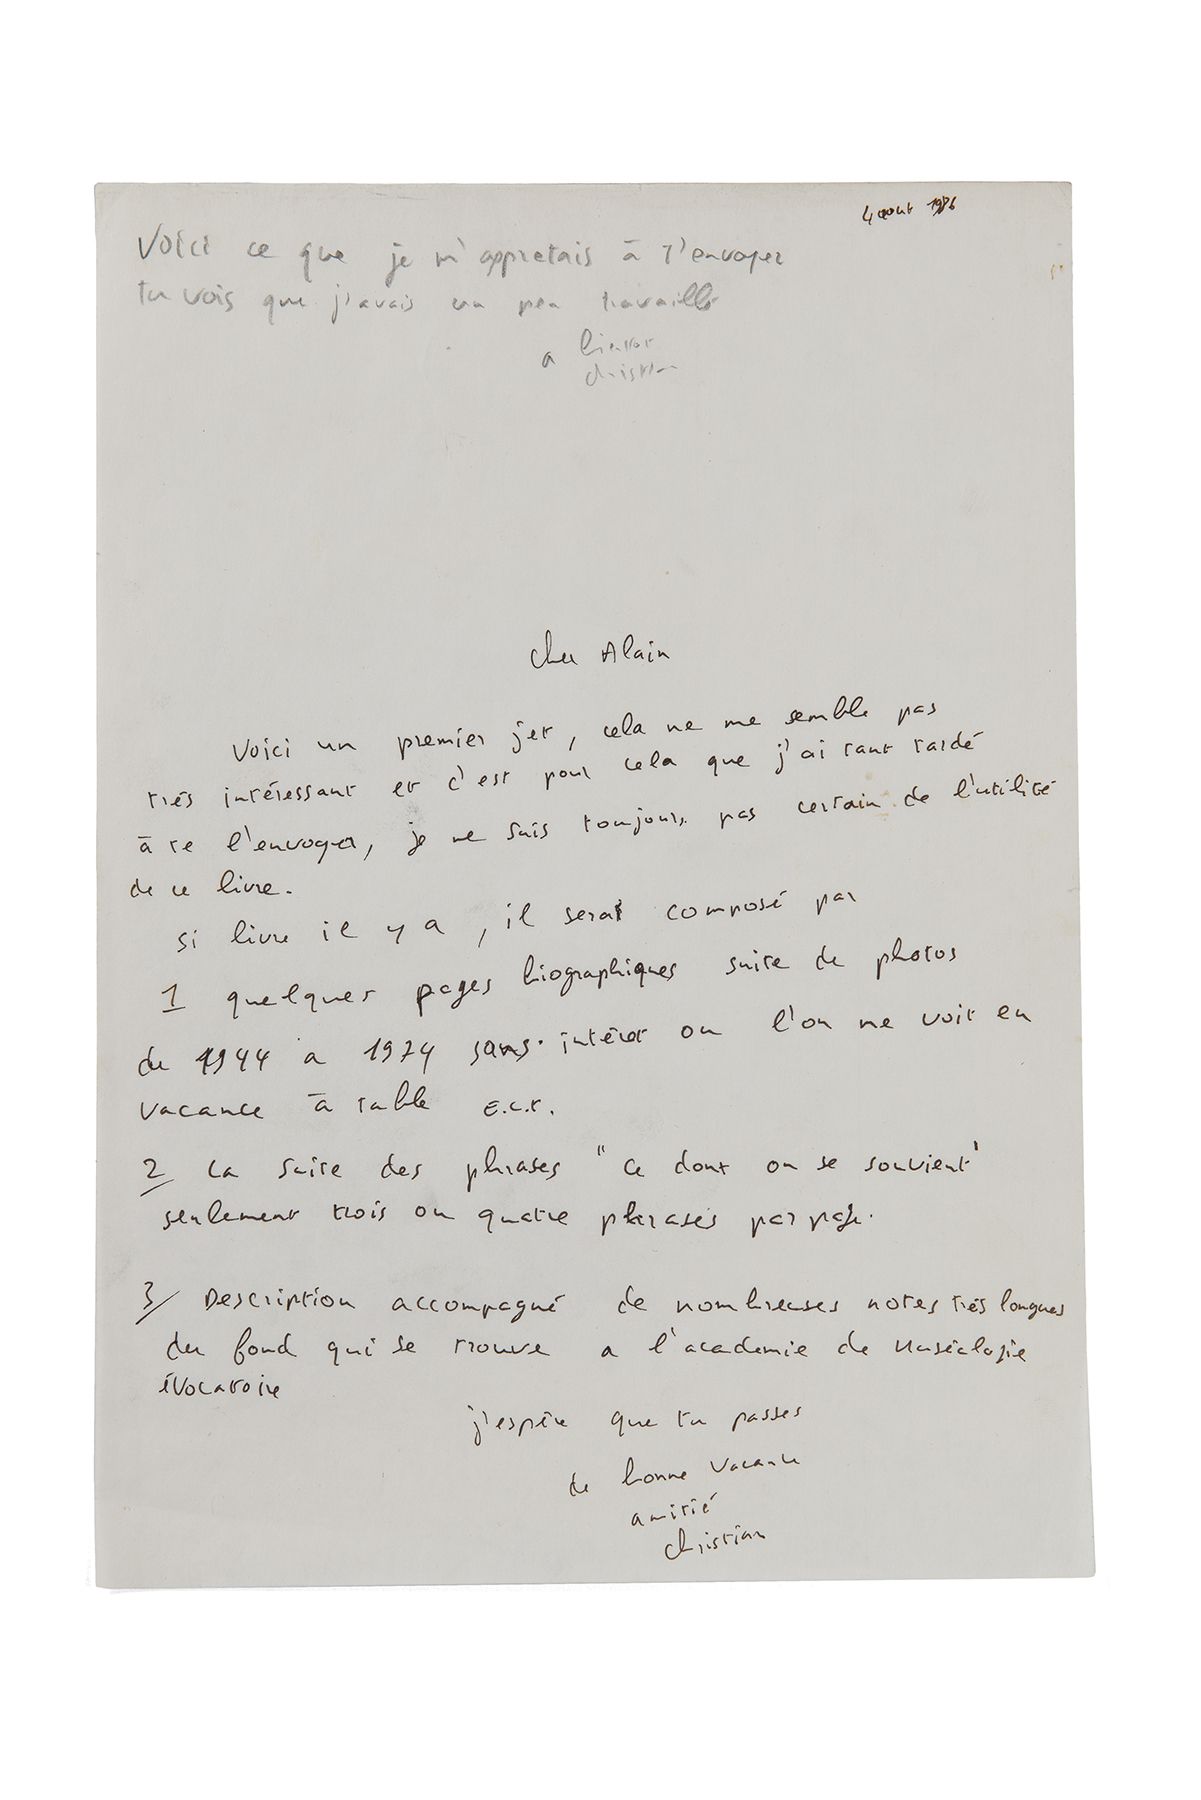 4 aout 19
Voici ce que je m'appretais à t'envoyer
tu vois que j'avais un peu travaillé
a bientot
christian
Cher Alain
Voici un premier jet, cela ne me semble pas
très intéressant et c'est pour cela que j'ai tant tardé
à te l'envoyer, je ne suis toujours pas certain de l'utilité
de ce livre.
si livre il y a, il serai composé par
1 quelques pages biographiques suite de photos
de 1944 a 1974 sans intéret ou l'on me voit en
vacance à table e.c.t.
2/ La suite des phrases "ce dont on se souvient"
seulement trois ou quatre phrases par page.
3/ Description accompagné de nombreuses notes très longues
du fond qui se trouve a l'academie de Muséologie
évocatoire
j'espère que tu passes
de bonne vacance
amitié
christian